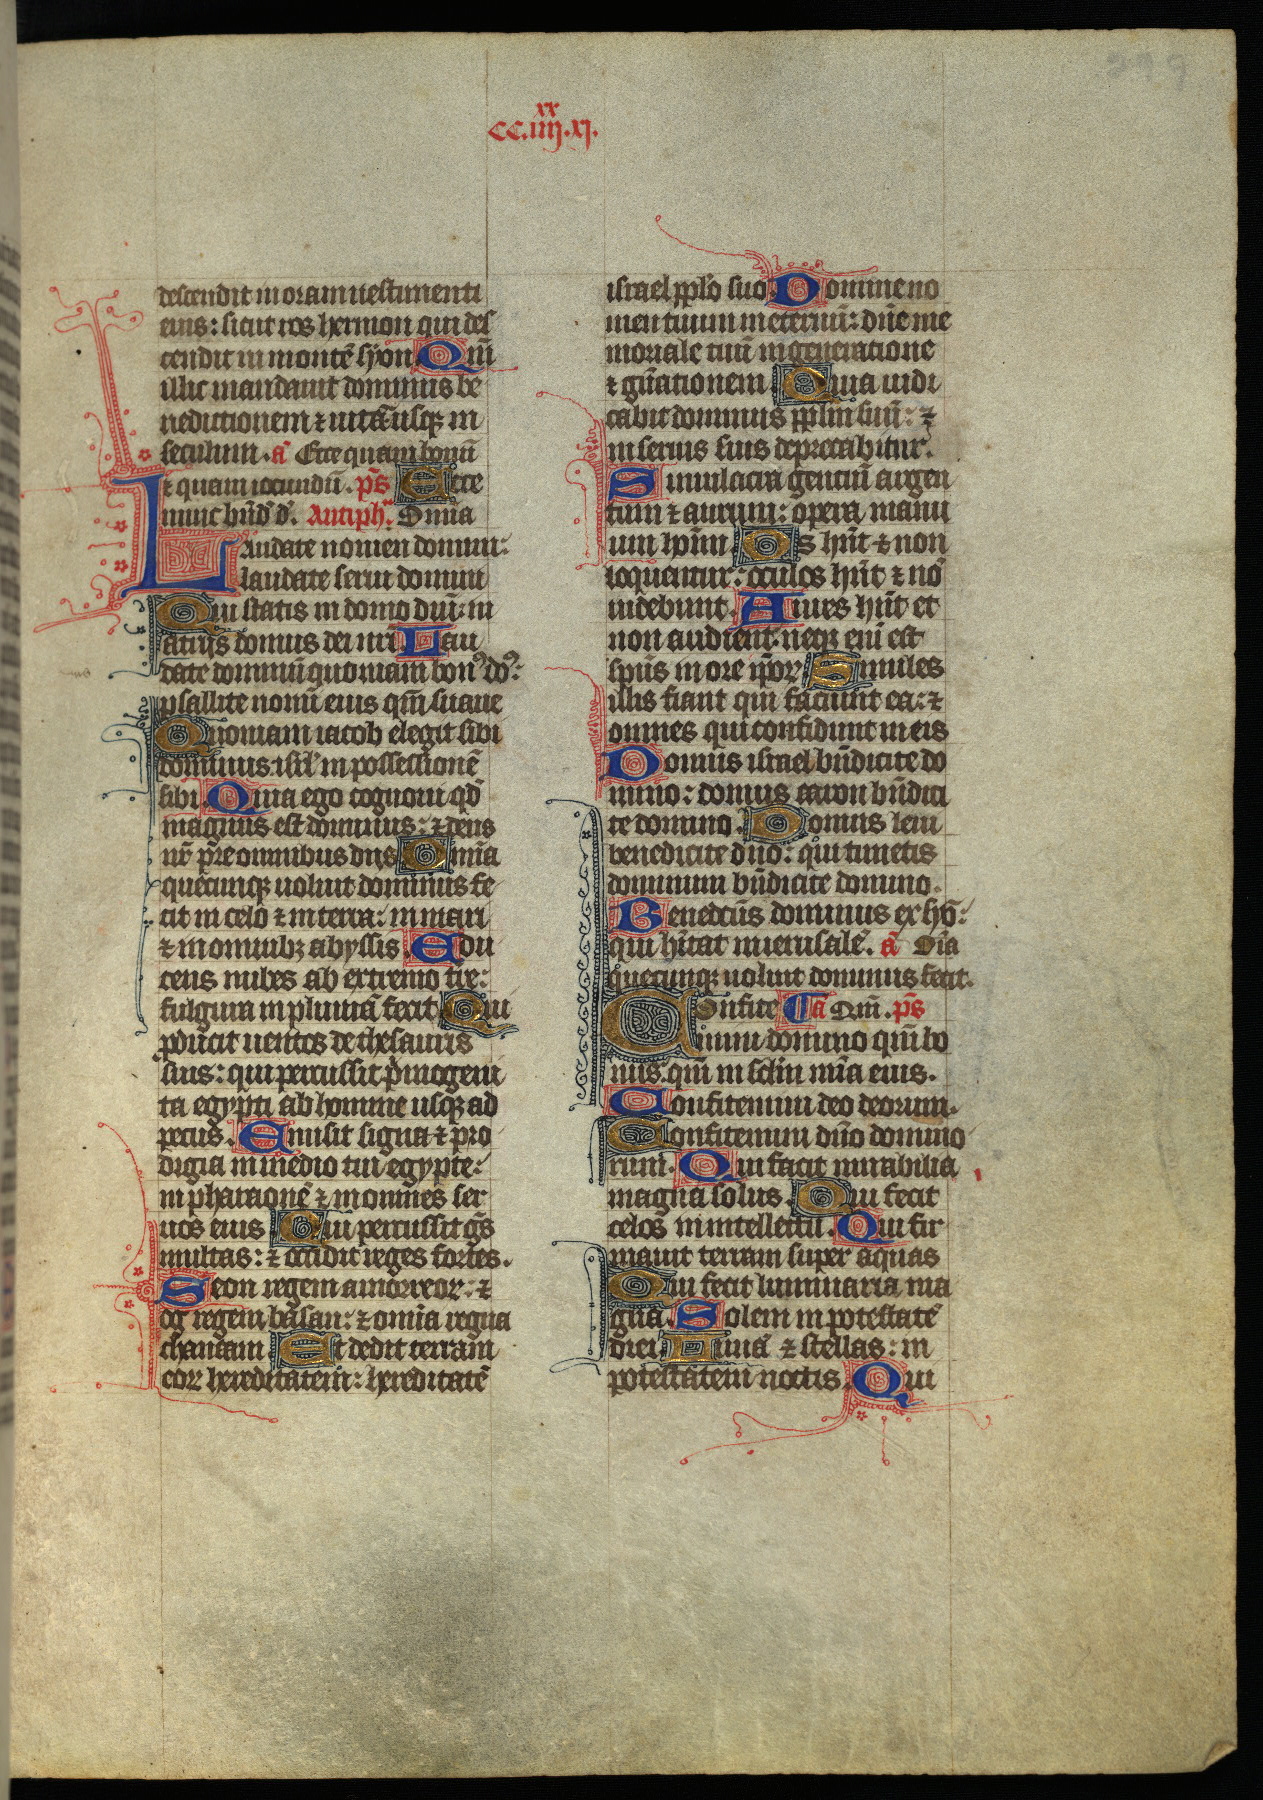 xx
CC.iiij.xj.
descendit in oram uestimenti
eius: sicut ros hermon qui des
cendit in montē syon Qm̄
illic mandauit dominus be
nedictionem ⁊ uitā usq; in
seculum. a͞ Ecce quam bonū
et quam iocundū. p̄s Ecce
nunc bn̄d d. Antiph. Omnia
Laudate nomen domini:
laudate serui dominū
Qui statis in domo dn̄i: in
atrijs domus dei nr̄i Lau
date dominū quoniam bonꝰ doꝰ:
psallite nomī eius qm̄ suaue
Quoniam iacob elegit sibi
dominus: isrl̄ in possessionē
sibi. Quia ego cognoui qd̄
magnus est dominus: ⁊ deus
nr̄ pre omnibus dijs Omnia
quecunq; uoluit dominus fe
cit in celo ⁊ in terra: in mari
⁊ in omnibꝫ abyssis. Edu
cens nubes ab extremo tr̄e:
fulgura in pluuiā fecit Qui
ꝓducit uentos de thesauris
suis: qui percussit pͥmogeni
ta egypti ab homine usq; ad
pecus. Emisit signa ⁊ pro
digia in medio tui egypte:
in pharaonē ⁊ in omnes ser
uos eius Qui percussit gn̄s
multas: ⁊ occidit reges fortes.
Seon regem amorreoꝝ: ⁊
og regem basan: ⁊ omīa regna
chanaam Et dedit terram
eoꝝ hereditatem: hereditatē
israel pplo suo Domine no
men tuum in eternū: dn̄e me
moriale tuū in generatione
⁊ gn̄ationem Quia iudi
cabit dominus pplm suū: ⁊
in seruis suis deprecabitur.
Simulacra gentiū argen
tum ⁊ aurum: opera manu
um hoīm Os hn̄t ⁊ non
loquentur: oculos hn̄t ⁊ nō
uidebunt. Aures hn̄t et
non audient: neq; eni est
sp̄us in ore ip̄oꝝ Similes
illis fiant qui faciunt ea: ⁊
omnes qui confidunt in eis
Domus israel bn̄dicite do
mino: domus aaron bn̄dici
te domino. Domus leui
benedicite dn̄o: qui timetis
dominum bn̄dicite domino.
Benedc̄us dominus ex syō:
qui hītat in ierusalē. a͞ Oīa
quecunq; uoluit dominus fecit.
Confite Ca͞ Qm̄. p̄s
mini domino qm̄ bo
nus: qm̄ in sc̄lm mīa eius.
Confitemini deo deorum.
Confitemini dn̄o domino
rum. Qui facit mirabilia
magna solus. Qui fecit
celos in intellectu. Qui fir
mauit terram super aquas
Qui fecit luminaria ma
gna. Solem in potestatē
diei Lunā ⁊ stellas: in
potestatem noctis. Qui